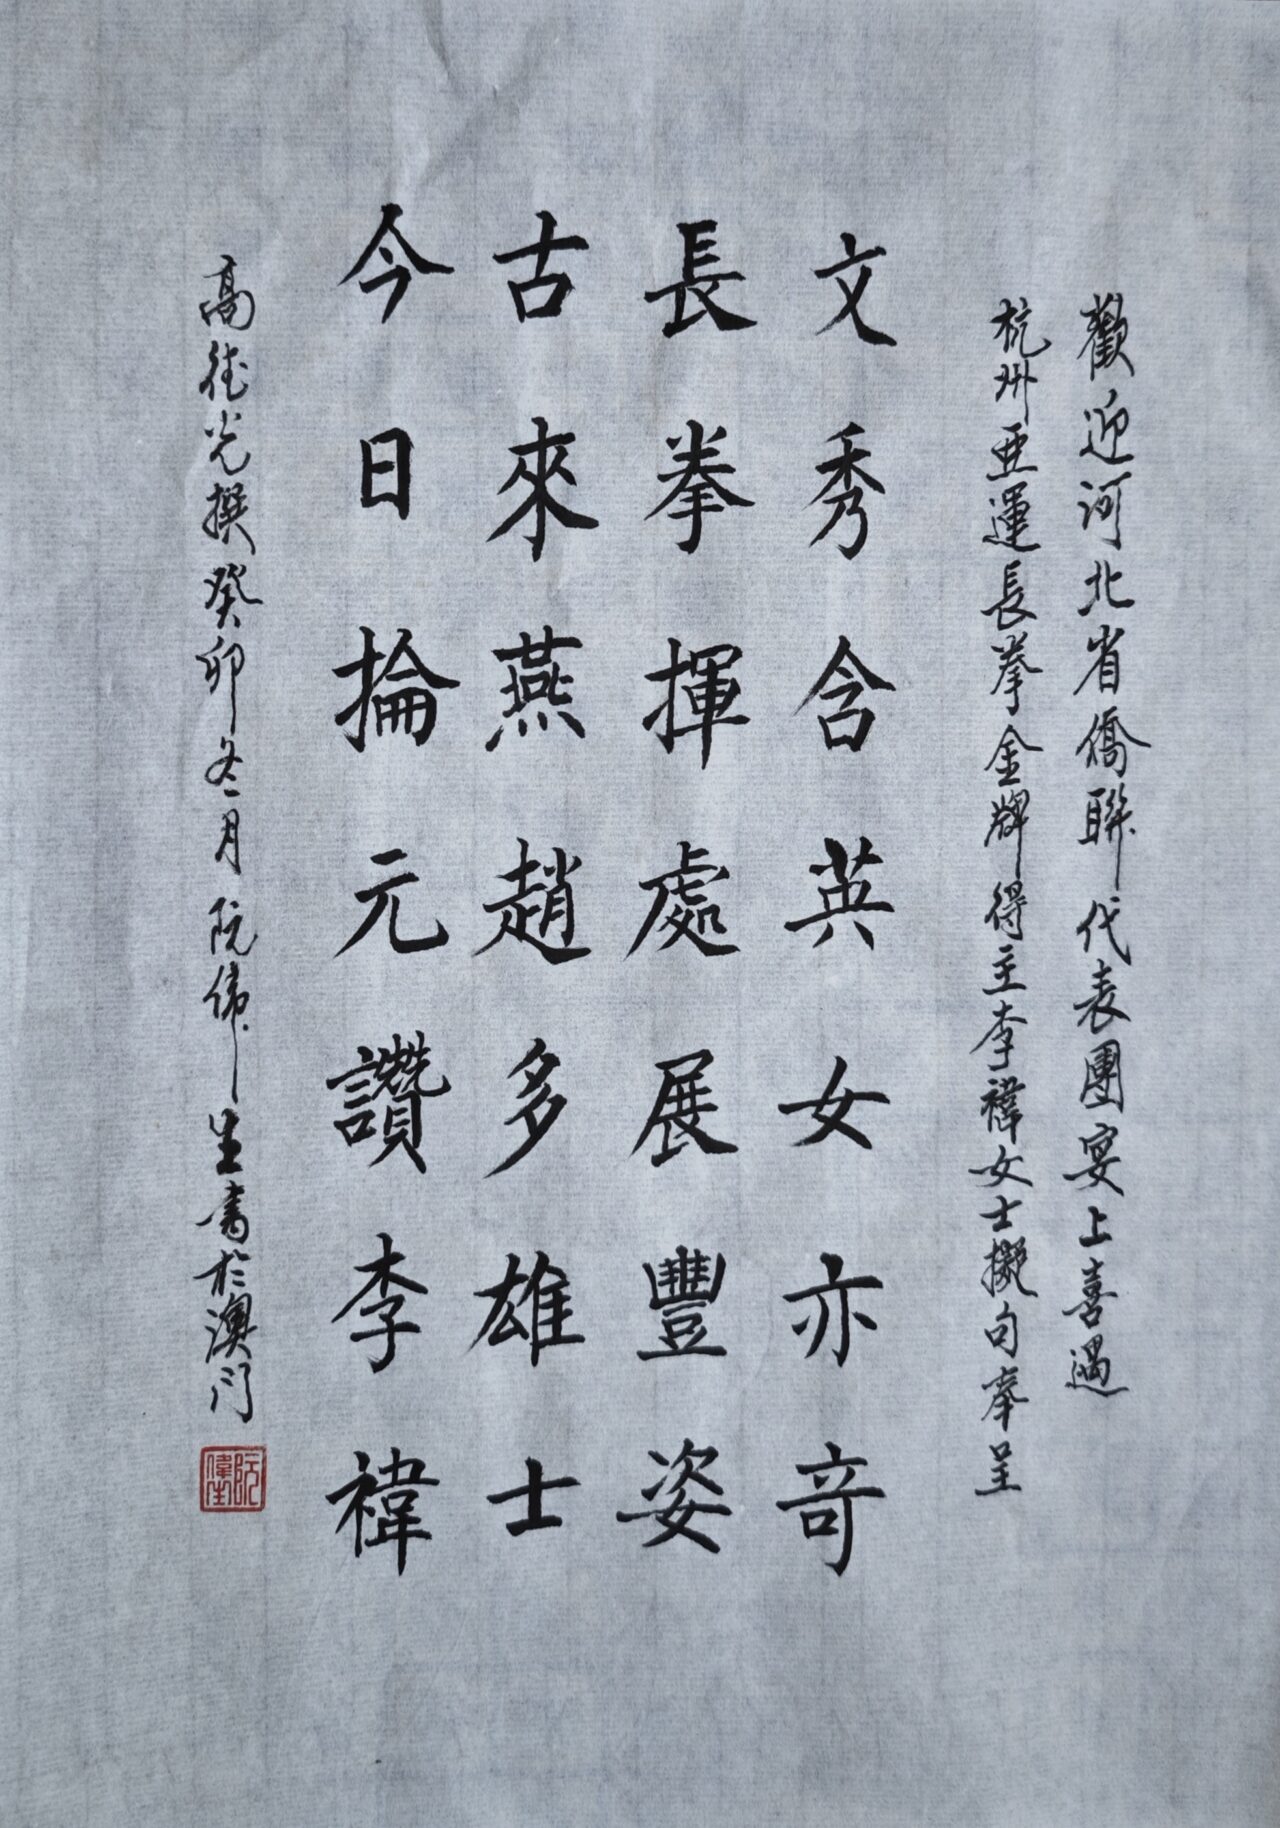 歡迎河北省僑聯代表團宴上喜遇
杭州亞運長拳金牌得主李褘女士擬句奉呈
文秀含英女亦奇
長拳揮處展豐姿
古來燕趙多雄士
今日掄元讚李褘
高德光撰癸卯冬月阮偉生書於澳门
阮偉生